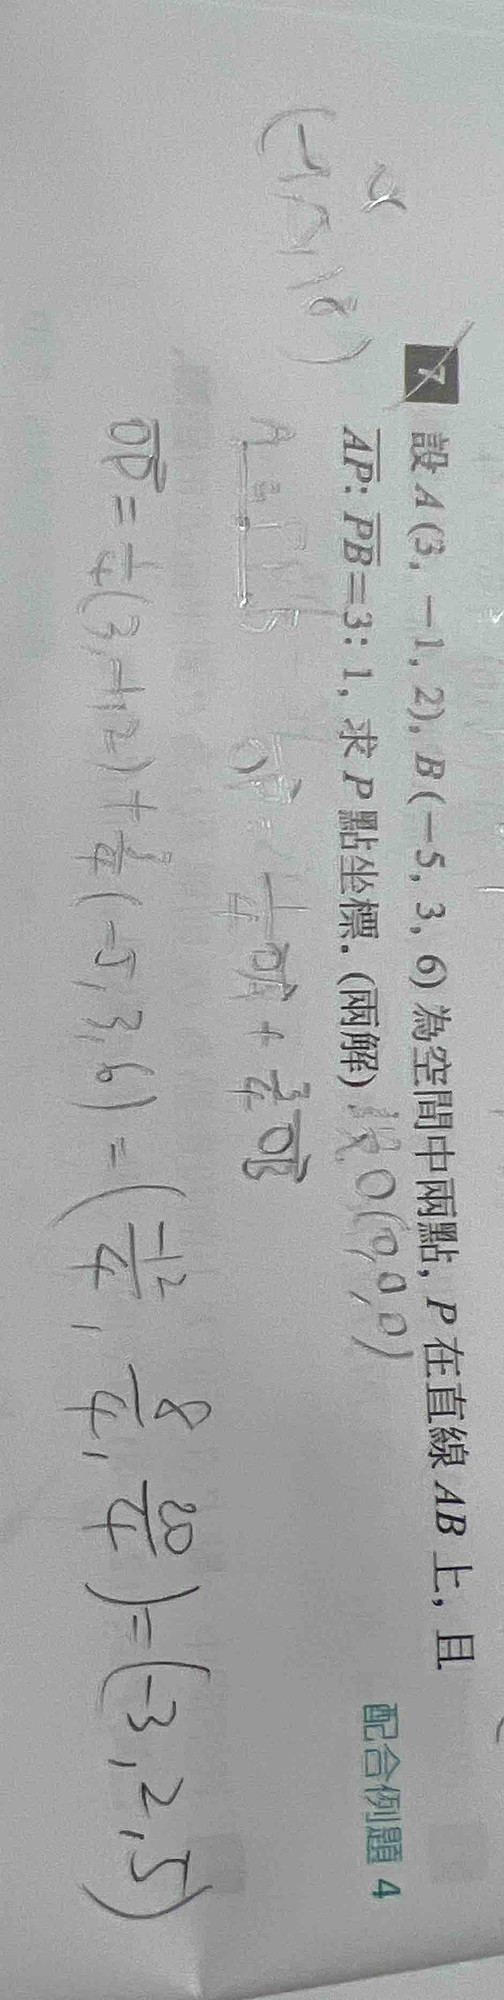 7 設 A (3, −1, 2), B (−5, 3, 6) 為空間中兩點, P 在直線 AB 上, 且
AP : PB = 3 : 1, 求 P 點坐標. (兩解) 設 O(0,0,0)
配合例題 4
A 3 P 1 B
OP = 1/4 OA + 3/4 OB
OP = 1/4 (3,-1,2) + 3/4 (-5,3,6) = (-12/4, 8/4, 20/4) = (-3,2,5)